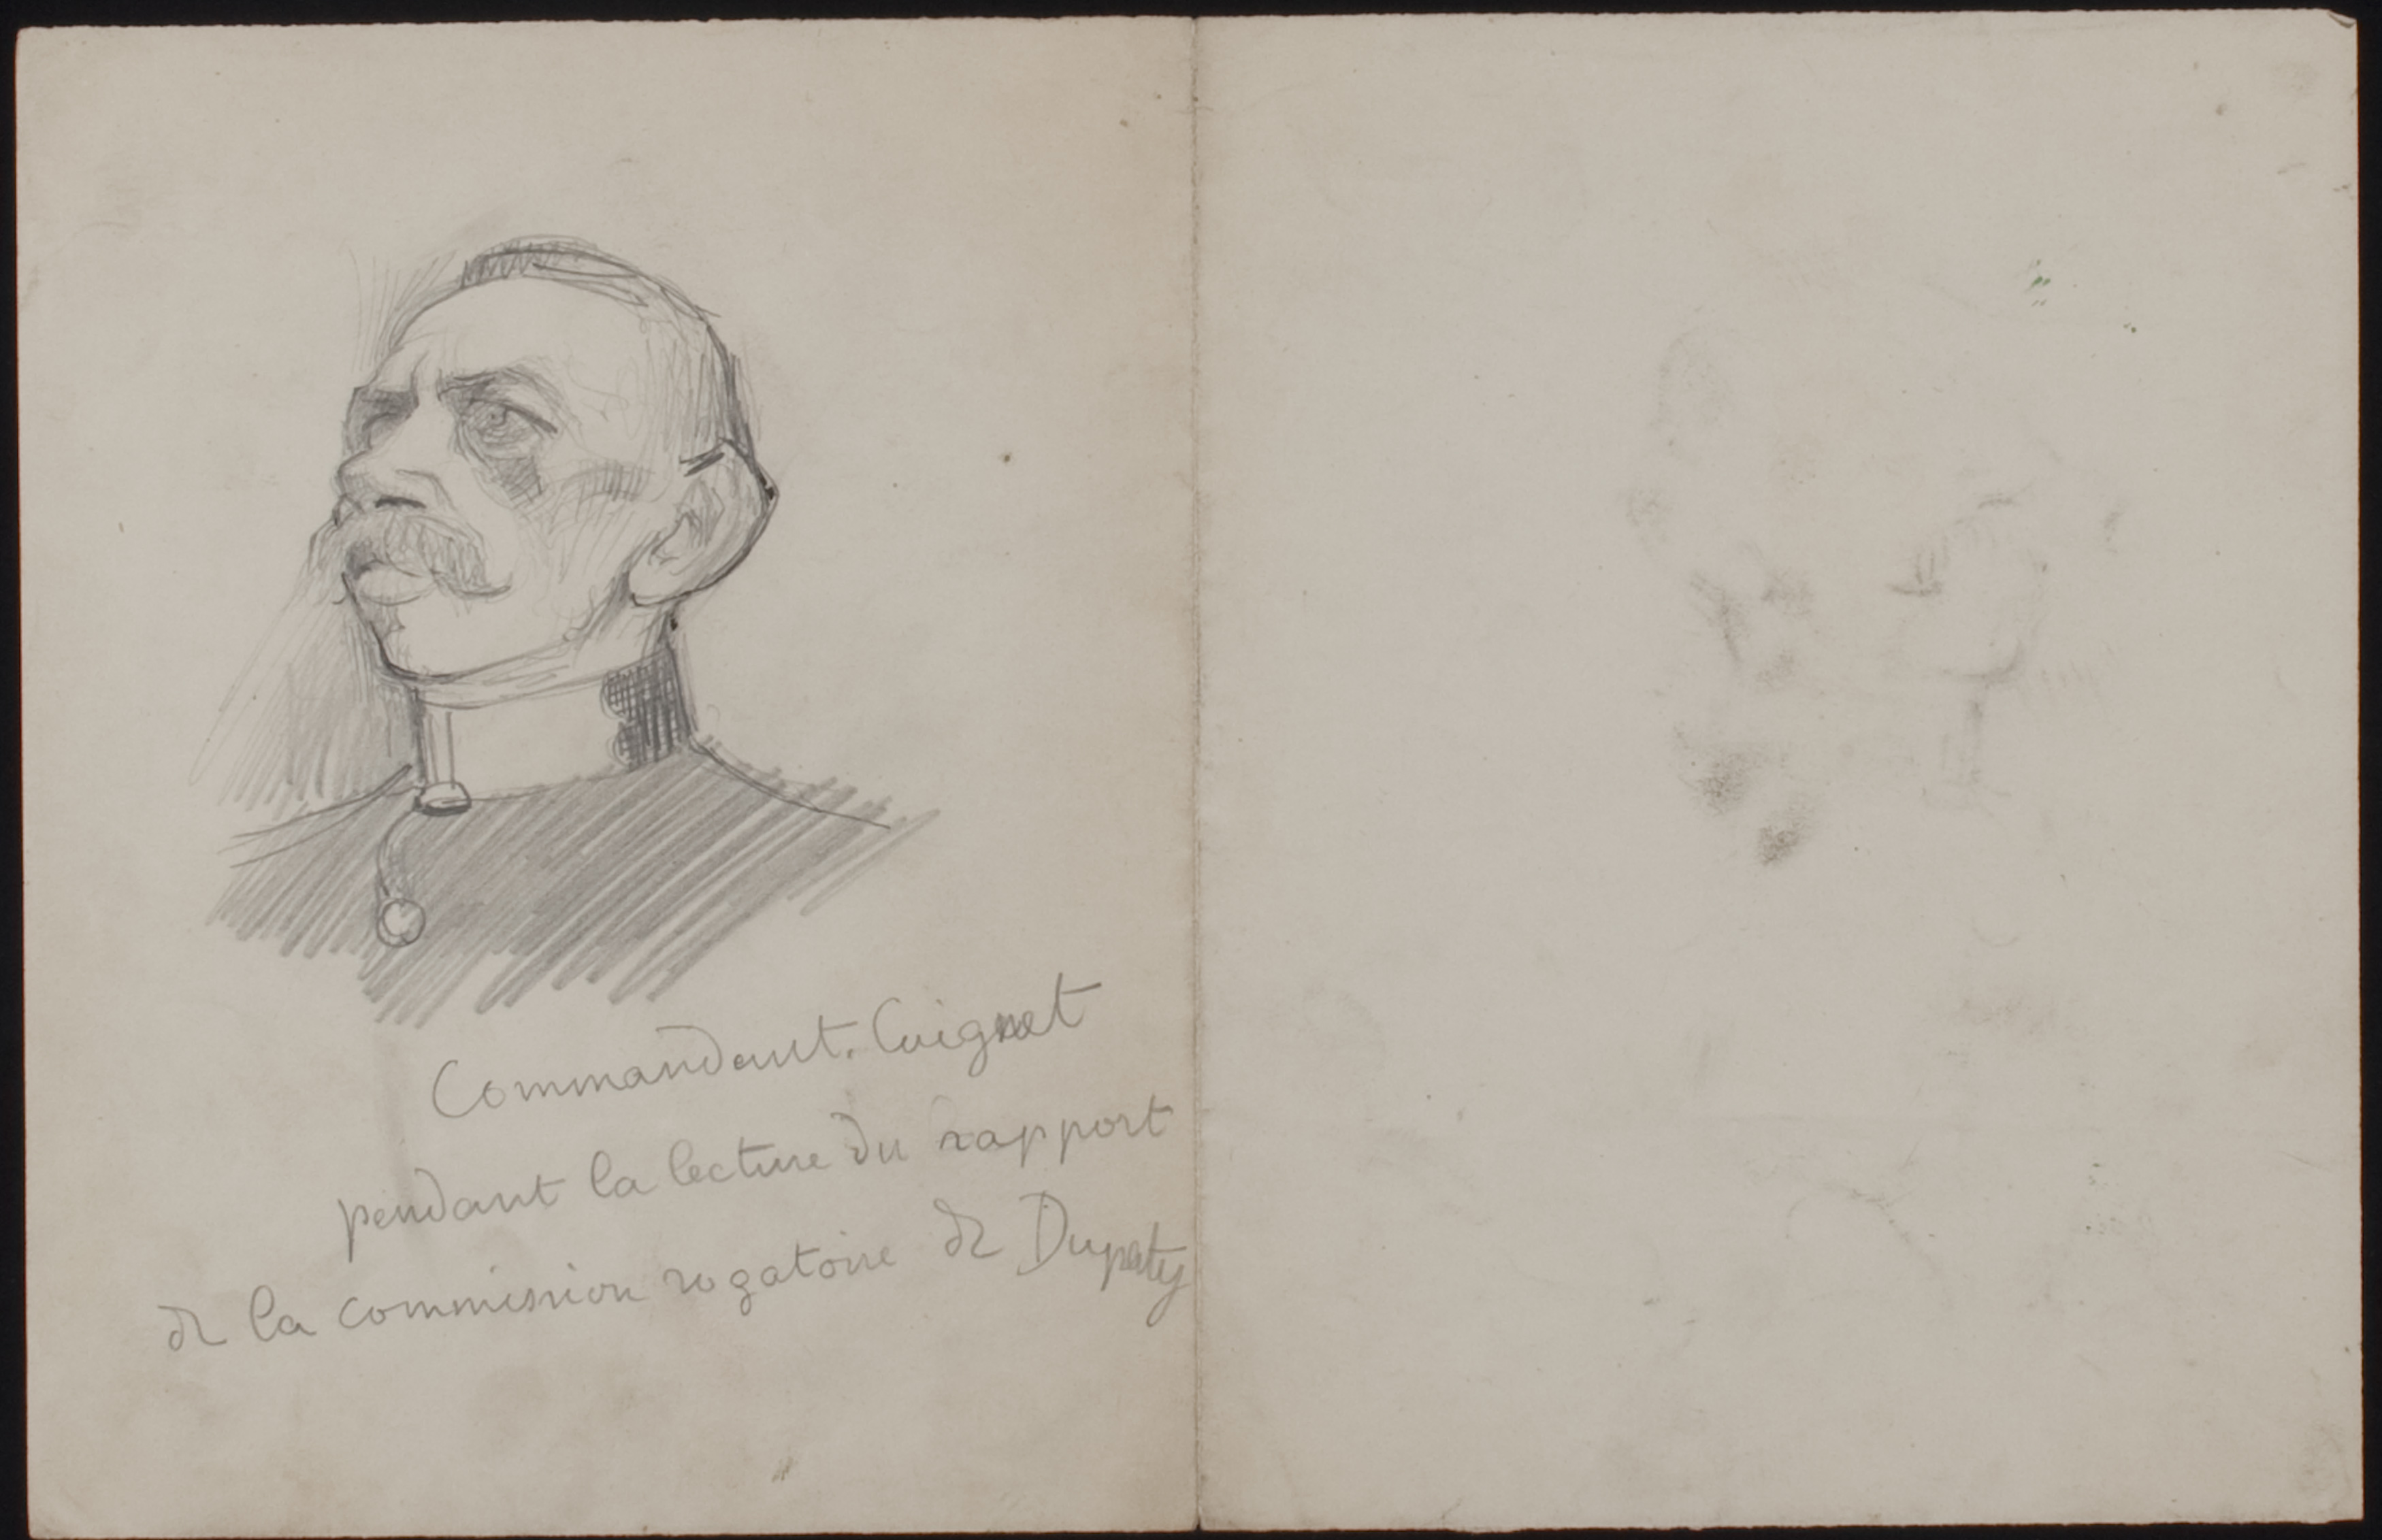 Commandant. Cuignet
pendant la lecture du rapport
de la commission rogatoire de Dupaty